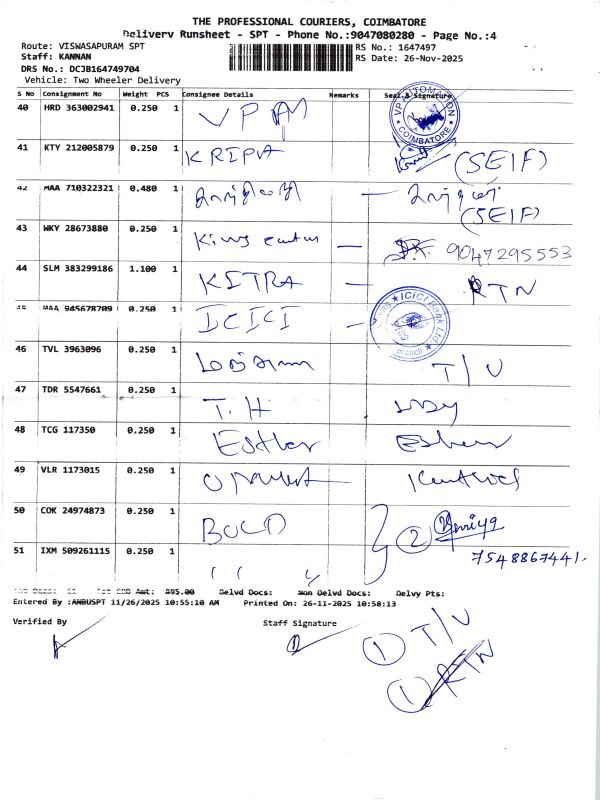 THE PROFESSIONAL COURIERS, COIMBATORE
Delivery Runsheet - SPT - Phone No.:9047080280 - Page No.:4
Route: VISWASAPURAM SPT
RS No.: 1647497
Staff: KANNAN
RS Date: 26-Nov-2025
DRS No.: DCJB164749704
Vehicle: Two Wheeler Delivery
S No Consignment No Weight PCS Consignee Details Remarks Seal & Signature
40 HRD 363002941 0.250 1 VPAM
VP AUTOMATION COIMBATORE
41 KTY 212005879 0.250 1 KRIPA (SEIF)
42 MAA 710322321 0.480 1
(SEIF)
43 WKY 28673880 0.250 1 9047295553
44 SLM 383299186 1.100 1 KITRA RTN
45 MAA 945678709 0.250 1 ICICI
ICICI Bank Ltd Branch
46 TVL 3963096 0.250 1 T/U
47 TDR 5547661 0.250 1 T.H
48 TCG 117350 0.250 1 Esther Esther
49 VLR 1173015 0.250 1
50 COK 24974873 0.250 1 BOLD 2
51 IXM 509261115 0.250 1 " " 7548867441.
Amt: 295.00 Delvd Docs: Non Delvd Docs: Delvy Pts:
Entered By :ANBUSPT 11/26/2025 10:55:10 AM Printed On: 26-11-2025 10:58:13
Verified By Staff Signature
1 T/U
1 RTN